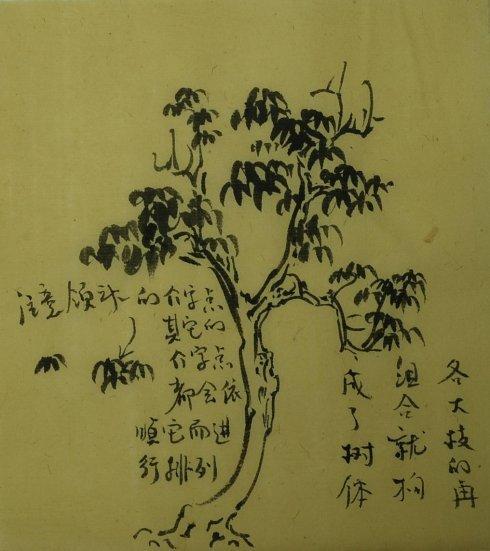 各大枝的再
组合就构
成了树体
注意领袖的介字点
其它的
介字点
都会依
顺它而进
行排列